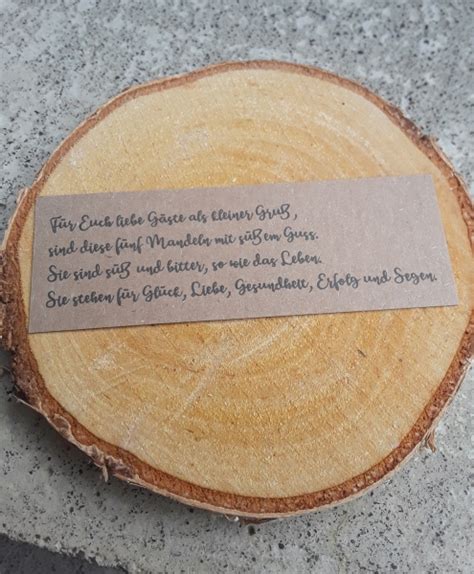 Für Euch liebe Gäste als kleiner Gruß,
sind diese fünf Mandeln mit süßem Guss.
Sie sind süß und bitter, so wie das Leben.
Sie stehen für Glück, Liebe, Gesundheit, Erfolg und Segen.